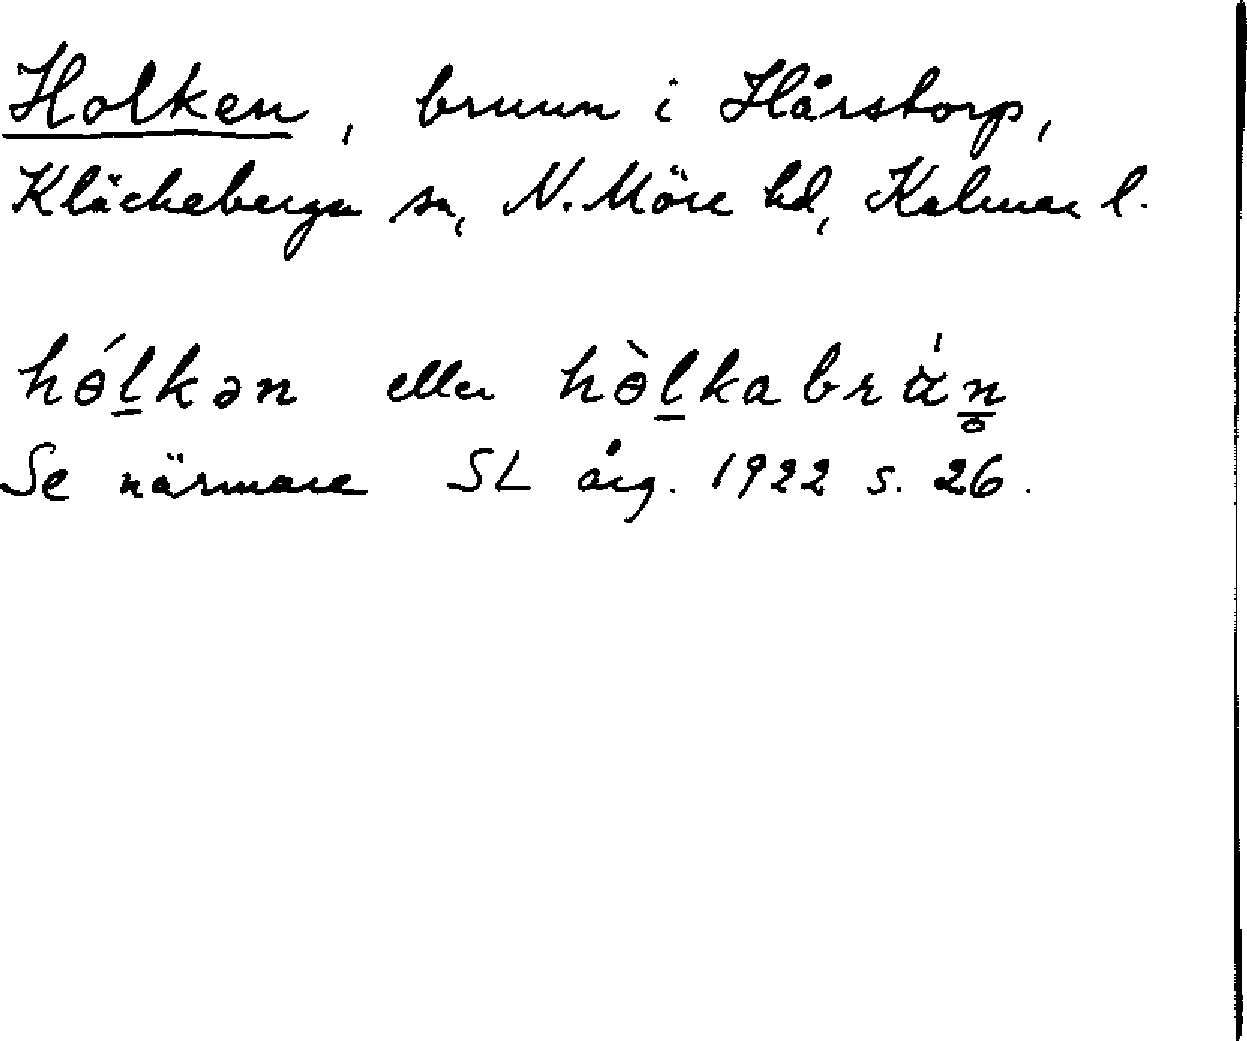 Holken, brunn i Hårstorp,
Kläckeberga sn, N. Möre hd, Kalmar l.
hɵ́l̲kən eller hɵ̀l̲kabrän̲
Se närmare SL årg. 1922 s. 26.